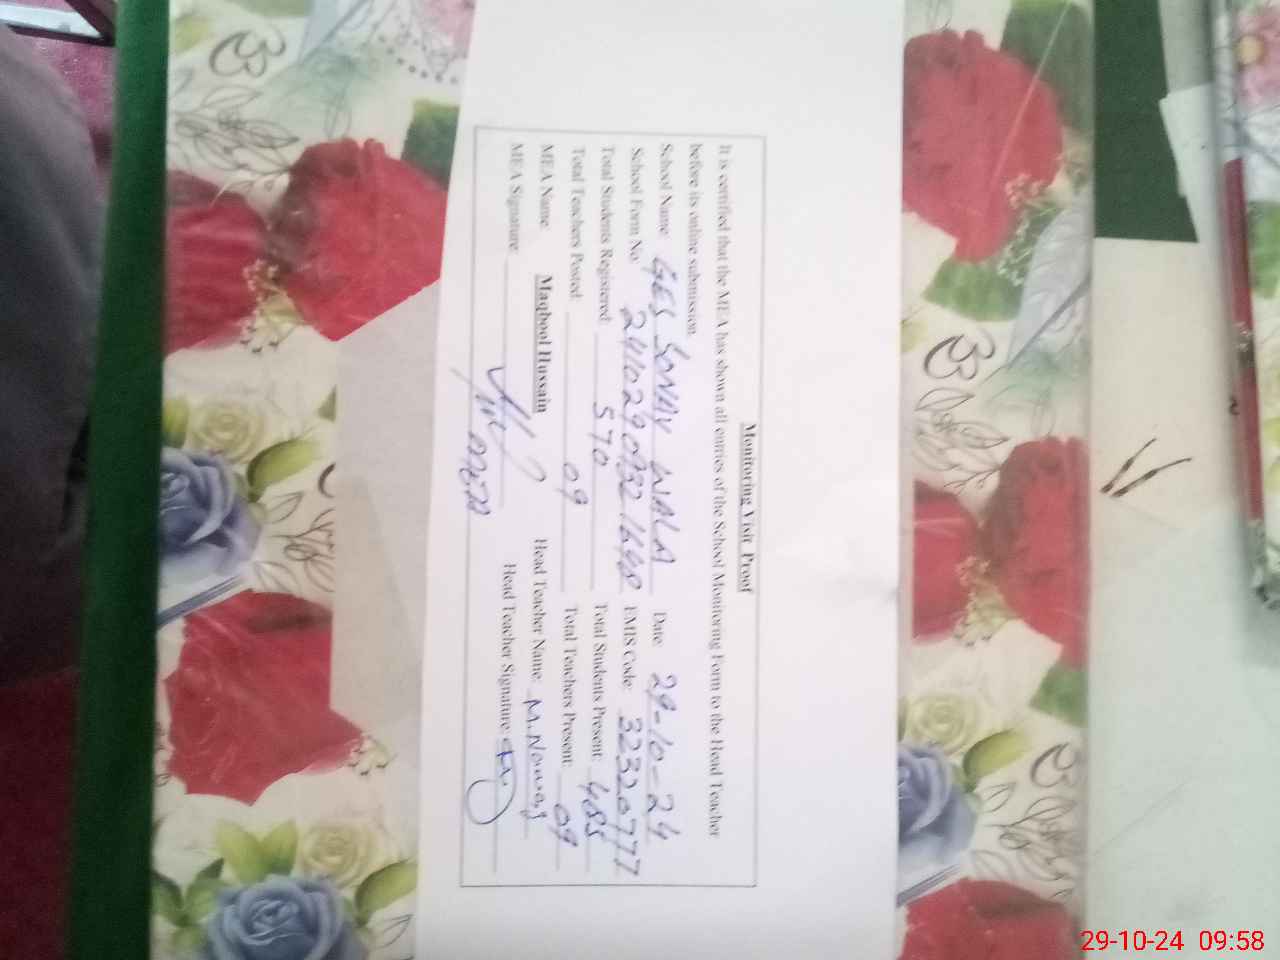 Monitoring Visit Proof
It is certified that the MEA has shown all entries of the School Monitoring Form to the Head Teacher
before its online submission.
School Name: GES SONAY WALA Date: 29-10-24
School Form No: EMIS Code: 32320777
Total Students Registered: 570 Total Students Present: 485
Total Teachers Posted: 09 Total Teachers Present: 09
MEA Name: Maqbool Hussain Head Teacher Name: M. Nawaz
MEA Signature: Head Teacher Signature:
29-10-24 09:58